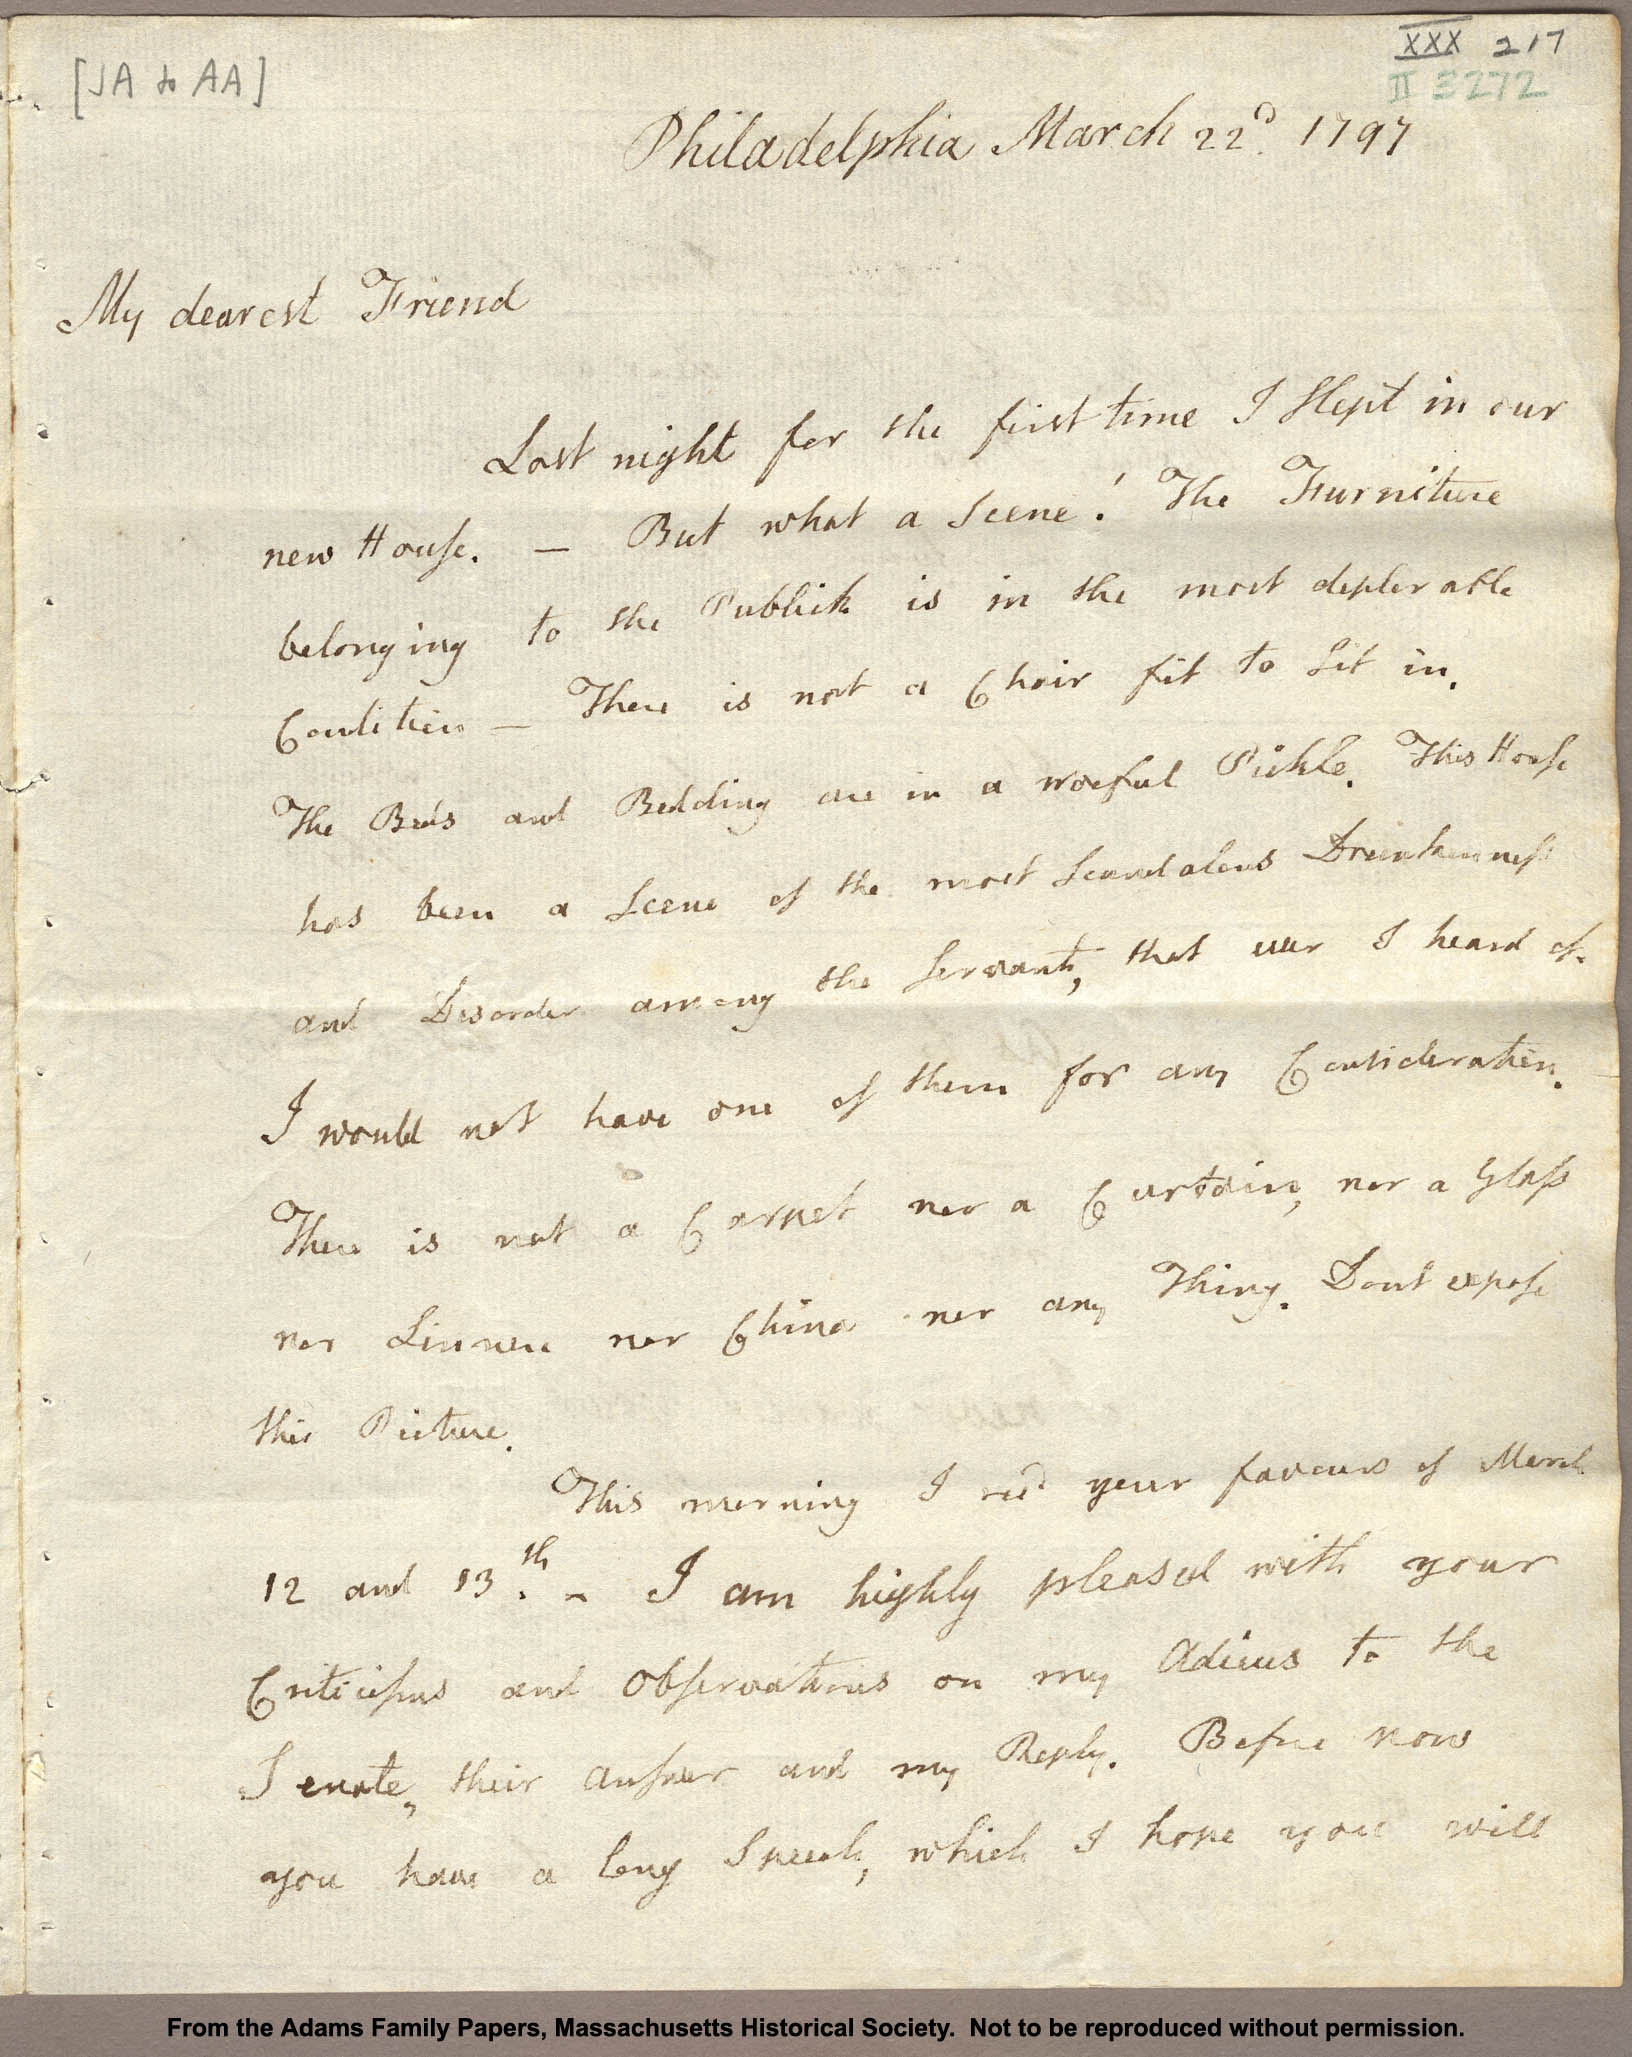 [JA to AA]
XXX 217
II 3272
Philadelphia March 22d. 1797
My dearest Friend
Last night for the first time I Slept in our
new House. — But what a Scene! The Furniture
belonging to the Publick is in the most deplorable
Condition — There is not a Chair fit to sit in.
The Beds and Bedding are in a woeful Pickle. This House
has been a scene of the most scandalous Drunkenness
and Disorder among the servants, that ever I heard of.
I would not have one of them for any Consideration.
There is not a Carpet nor a Curtain, nor a Glass
nor Linnen nor China nor any Thing. Dont expose
this Picture.
This morning I recd your favours of March
12 and 13.th — I am highly pleased with your
Criticisms and Observations on my Adieus to the
Senate, their Answer and my Reply. Before now
you have a long Speech, which I hope you will
From the Adams Family Papers, Massachusetts Historical Society. Not to be reproduced without permission.